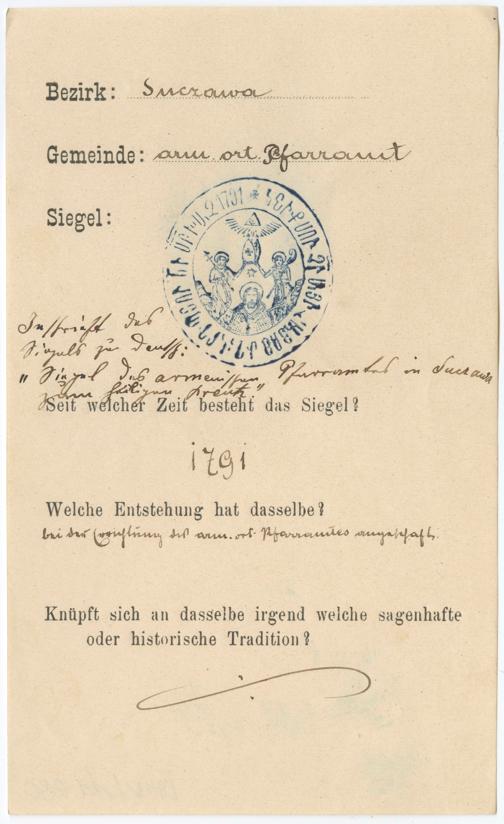 Bezirk: Suczawa
Gemeinde: arm. ort. Pfarramt
Siegel:
1791
Inschrift des
Siegels zu deutsch:
"Siegel des armenischen Pfarramtes in Suczawa
zum heiligen Kreutz"
Seit welcher Zeit besteht das Siegel?
1791
Welche Entstehung hat dasselbe?
bei der Errichtung des arm. ort. Pfarramtes angeschafft.
Knüpft sich an dasselbe irgend welche sagenhafte
oder historische Tradition?